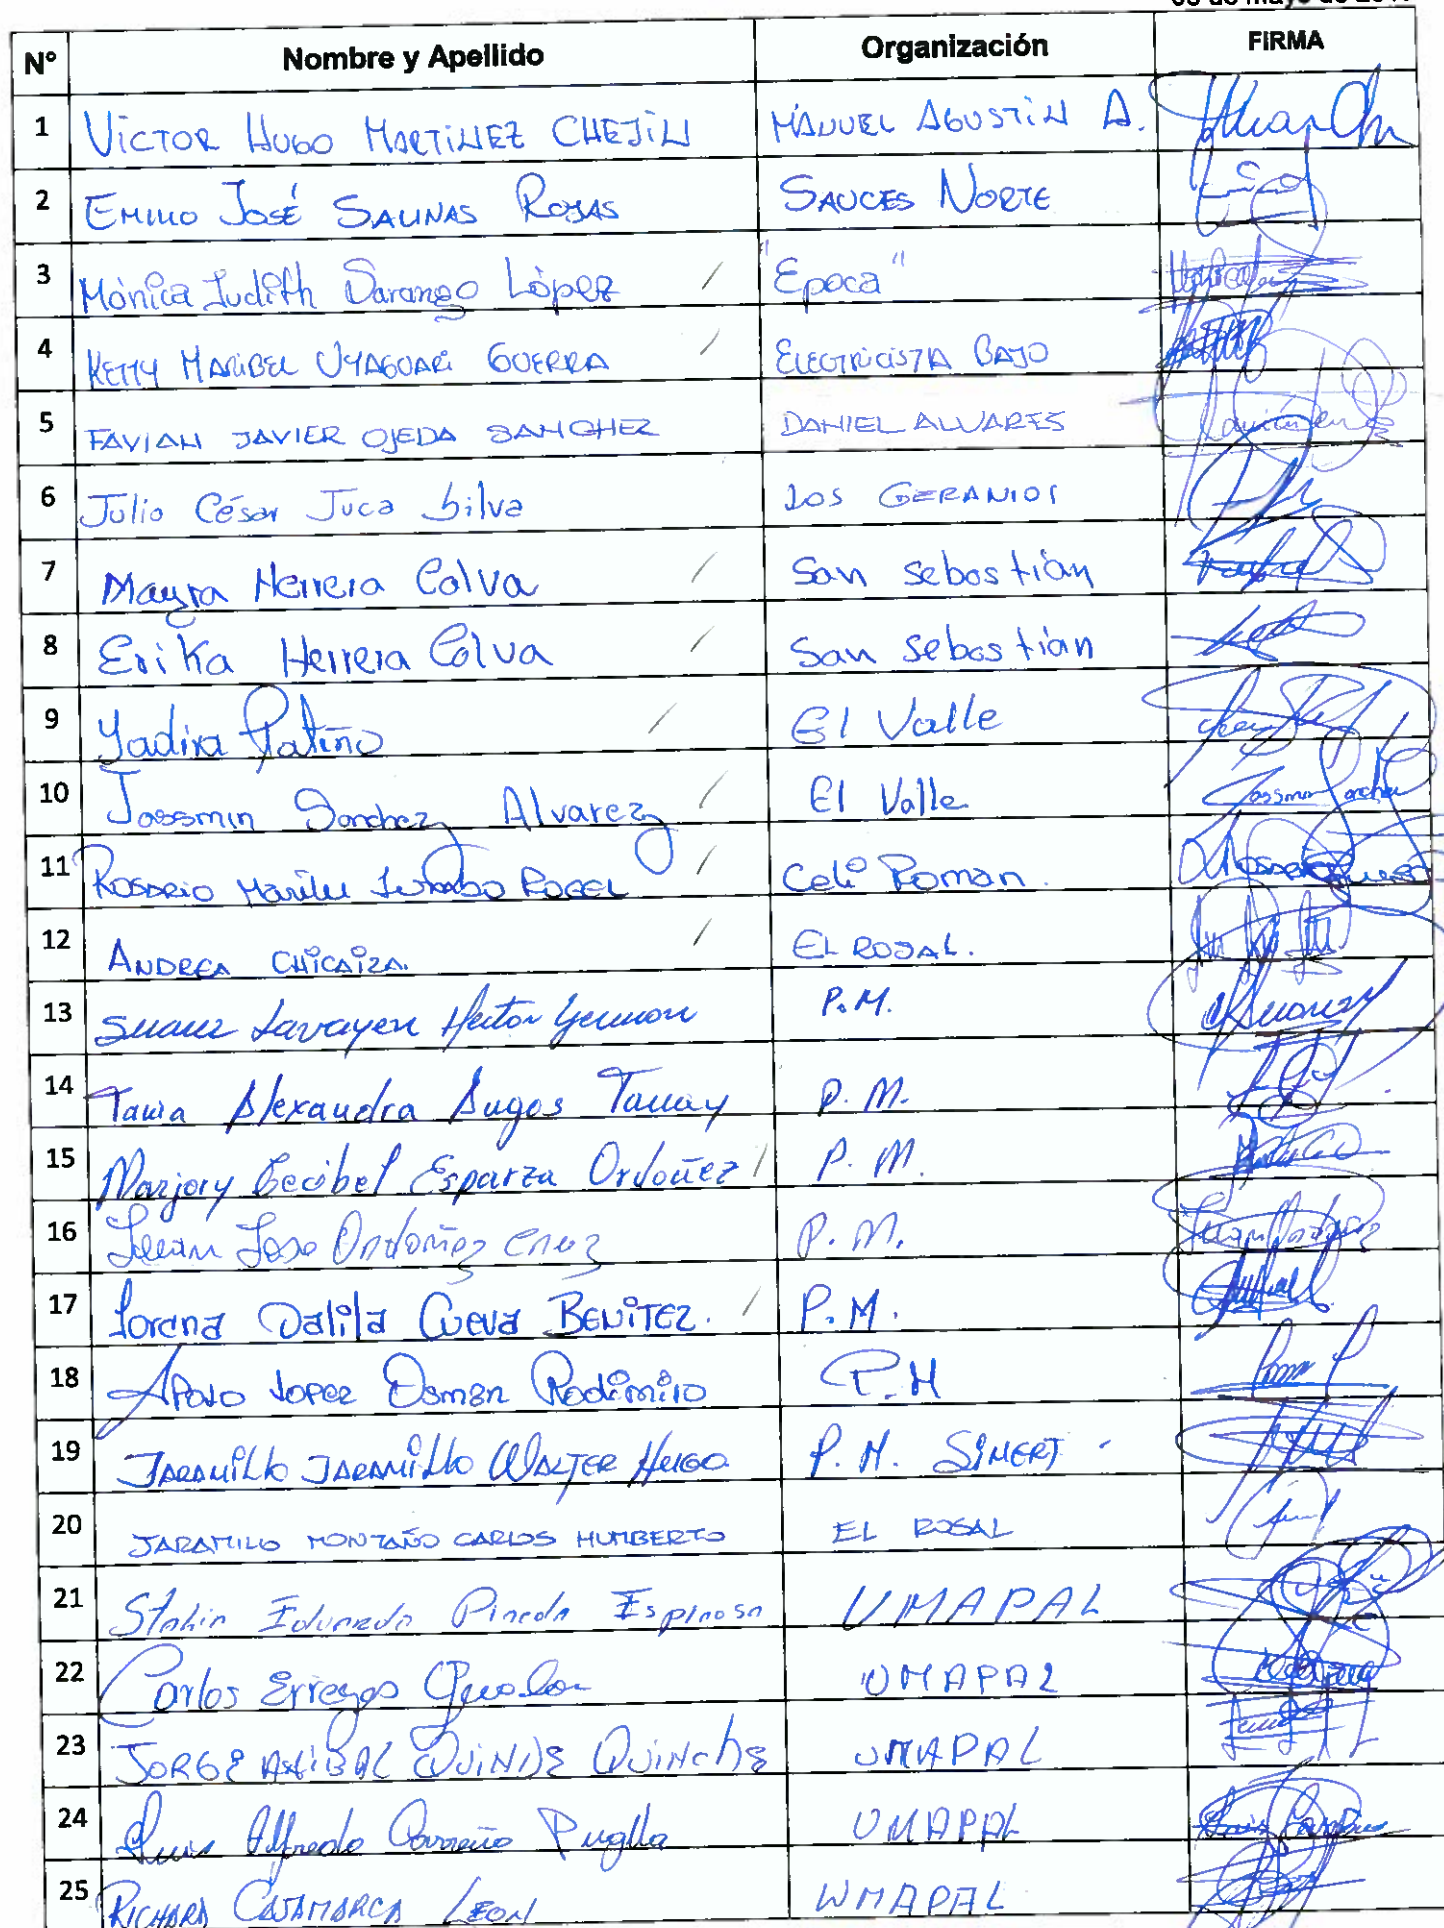 Nº Nombre y Apellido Organización FIRMA
1 VICTOR HUGO MARTINEZ CHEJIN MANUEL AGUSTIN A.
2 EMILIO JOSÉ SALINAS ROJAS SAUCES NORTE
3 Mónica Judith Sarango López / "Epoca"
4 KETTY MARIBEL UYAGUARI GUERRA / ELECTRICISTA BAJO
5 FAVIAN JAVIER OJEDA SANCHEZ DANIEL ALVARES
6 Julio César Juca Silva LOS GERANIOS
7 Mayra Herrera Calva / San Sebastián
8 Erika Herrera Calva / San Sebastián
9 Yadira Patiño / El Valle
10 Jassmin Sanchez Alvarez / El Valle
11 ROSARIO Marilu Jumbo ROGEL / Celi Roman.
12 ANDREA CHICAIZA. / EL ROSAL.
13 Suarez Lavayen Hector P.M.
14 Tania Alexandra Tanay P.M.
15 Marjory Cecibel Esparza Ordoñez / P.M.
16 Juan Jose Ordoñez Cruz P.M.
17 Lorena Dalila Cueva BENITEZ. / P.M.
18 APOLO LOPEZ Osman Rodimiro P.M
19 JARAMILLO JARAMILLO WALTER HUGO P.M. SIMERT
20 JARAMILLO MONTAÑO CARLOS HUMBERTO EL ROSAL
21 Stalin Eduardo Pineda Espinosa UMAPAL
22 Carlos Erreyes UMAPAL
23 JORGE ANIBAL QUINDE QUINCHE UMAPAL
24 Luis Alfredo Carreño Puglla UMAPAL
25 RICHARD CAJAMARCA LEON UMAPAL